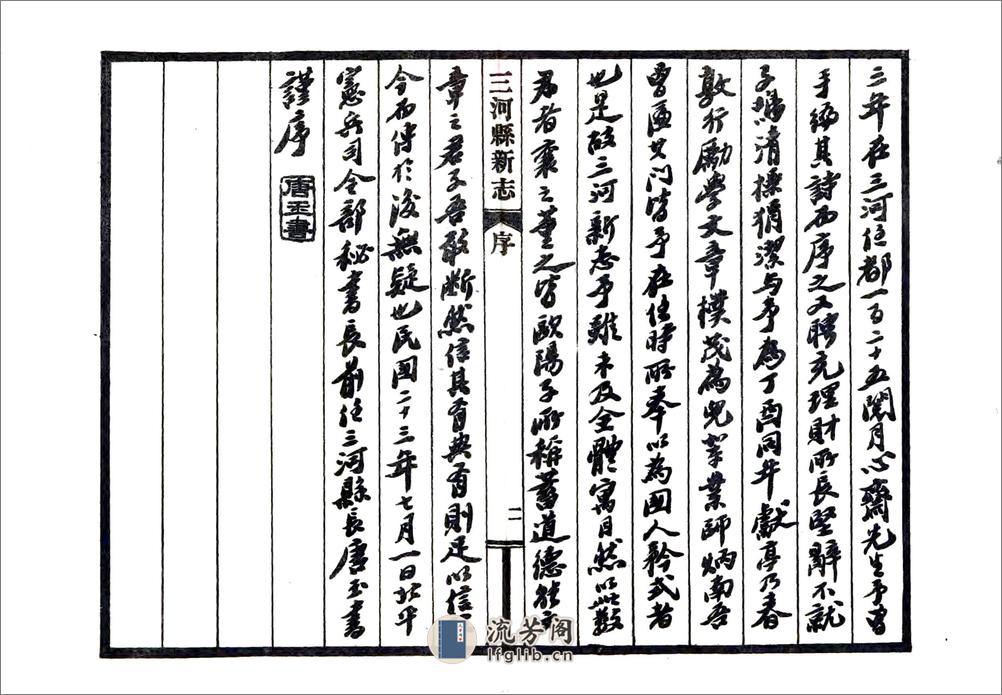 三年在三河任都一百二十五閱月心齋先生予曾
手編其詩而序之又聘充理財所長堅辭不就
子鴻清標猶潔与予為丁酉同年獻亭乃春
敦行勵學文章樸茂為兒輩業師炳南吾
曾匾其門皆予在任時所奉以為國人矜式者
也是故三河新志予雖未及全體寓目然以此數
君者襄之董之皆歐陽子所稱蓄道德能文
三河縣新志 序 二
章之君子吾敢斷然信其有典有則足以信
今而傳於後無疑也民國二十三年七月一日北平
憲兵司令部秘書長前任三河縣長唐玉書
謹序
唐玉書
流芳阁
lfglib.cn